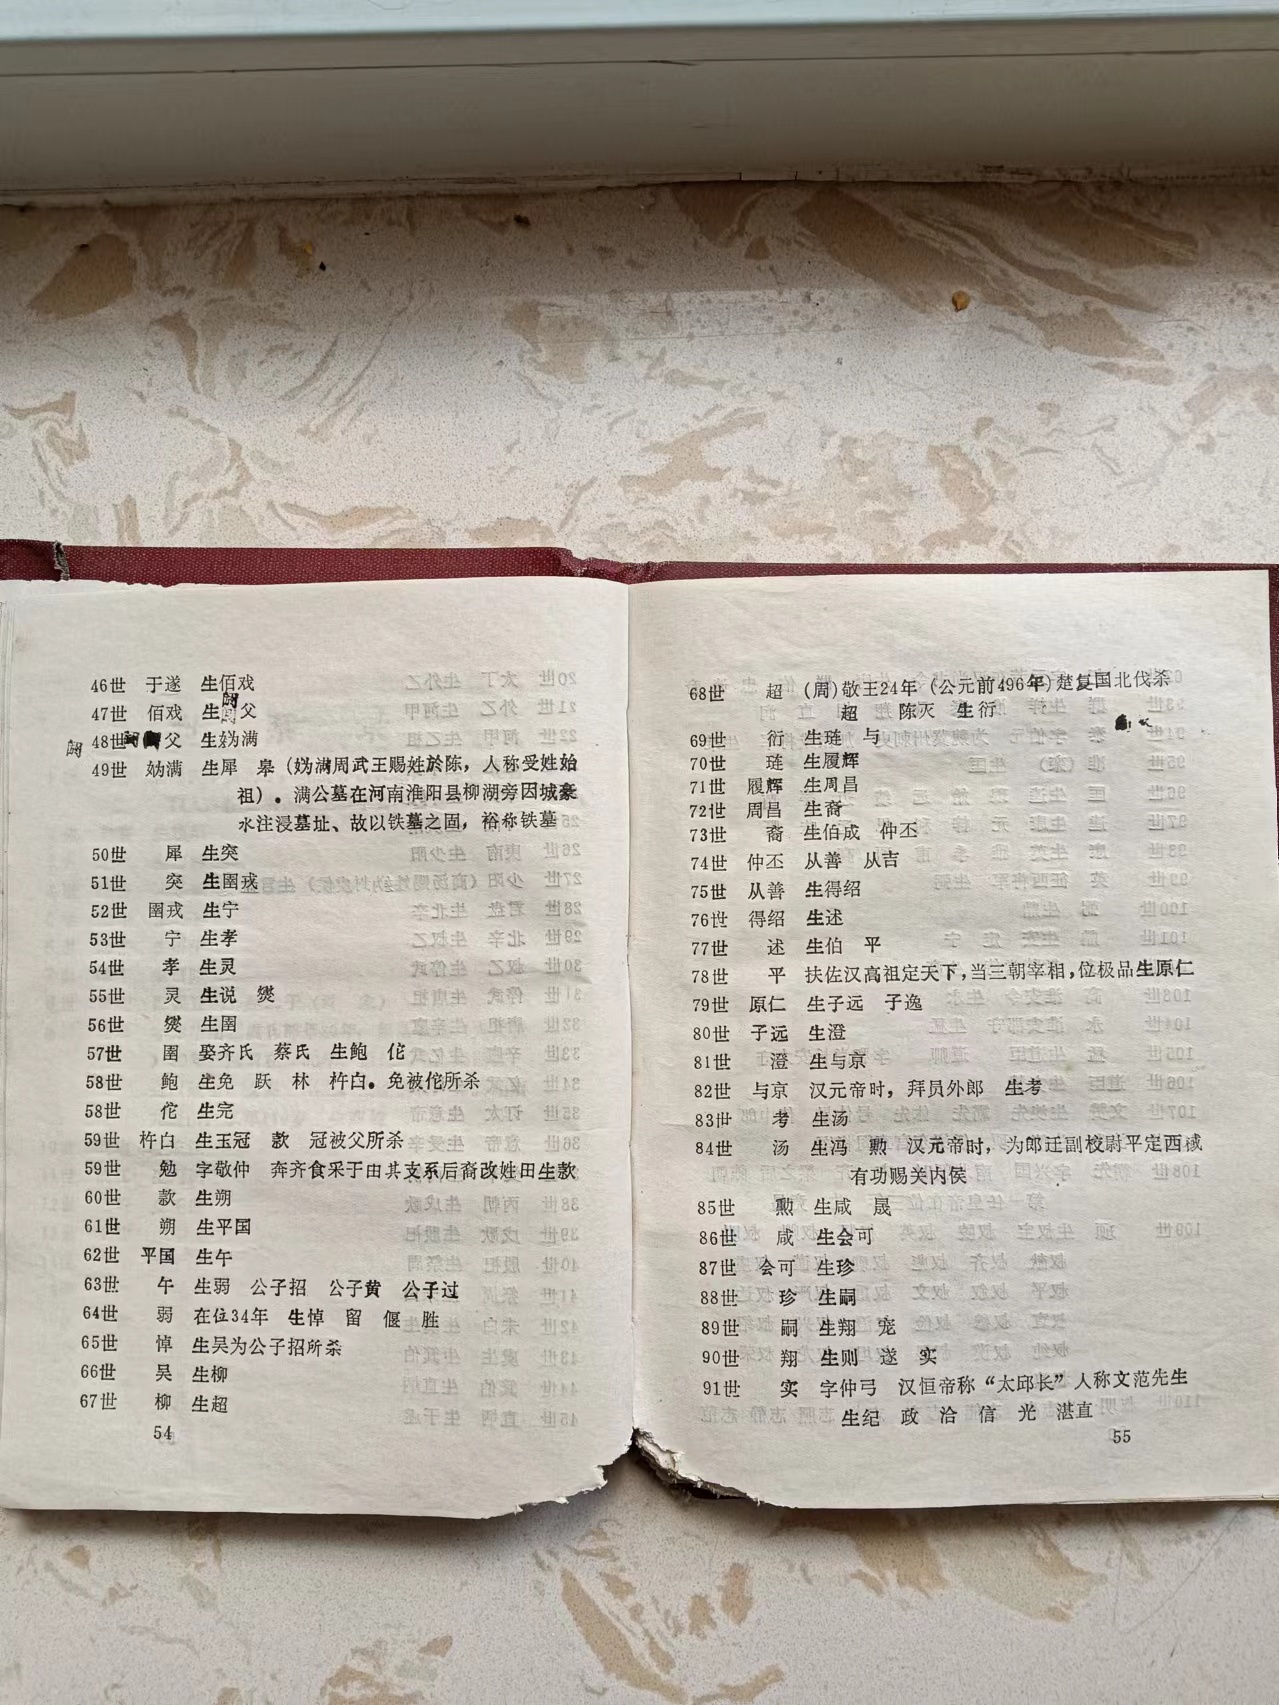 46世 于遂 生佰戏
47世 佰戏 生阏父
阏
48世 父 生妫满
49世 妫满 生犀 皋 (妫满周武王赐姓於陈，人称受姓始
祖)。满公墓在河南淮阳县柳湖旁因城豪
水注浸墓址、故以铁墓之固，裕称铁墓
50世 犀 生突
51世 突 生圉戎
52世 圉戎 生宁
53世 宁 生孝
54世 孝 生灵
55世 灵 生说 爕
56世 爕 生圉
57世 圉 娶齐氏 蔡氏 生鲍 佗
58世 鲍 生免 跃 林 杵臼。免被佗所杀
58世 佗 生完
59世 杵臼 生玉冠 款 冠被父所杀
59世 勉 字敬仲 奔齐食采于由其支系后裔改姓田生敦
60世 款 生朔
61世 朔 生平国
62世 平国 生午
63世 午 生弱 公子招 公子黄 公子过
64世 弱 在位34年 生悼 留 偃 胜
65世 悼 生吴为公子招所杀
66世 吴 生柳
67世 柳 生超
54
68世 超 (周)敬王24年 (公元前496年)楚复国北伐杀
超 陈灭 生衍
69世 衍 生琏 与
70世 琏 生履辉
71世 履辉 生周昌
72世 周昌 生裔
73世 裔 生伯成 仲丕
74世 仲丕 从善 从吉
75世 从善 生得绍
76世 得绍 生述
77世 述 生伯 平
78世 平 扶佐汉高祖定天下，当三朝宰相，位极品生原仁
79世 原仁 生子远 子逸
80世 子远 生澄
81世 澄 生与京
82世 与京 汉元帝时，拜员外郎 生考
83世 考 生汤
84世 汤 生冯 勲 汉元帝时，为郎迁副校尉平定西彧
有功赐关内侯
85世 勲 生咸 晟
86世 咸 生会可
87世 会可 生珍
88世 珍 生嗣
89世 嗣 生翔 宠
90世 翔 生则 遂 实
91世 实 字仲弓 汉恒帝称“太邱长”人称文范先生
生纪 政 洽 信 光 湛直
55